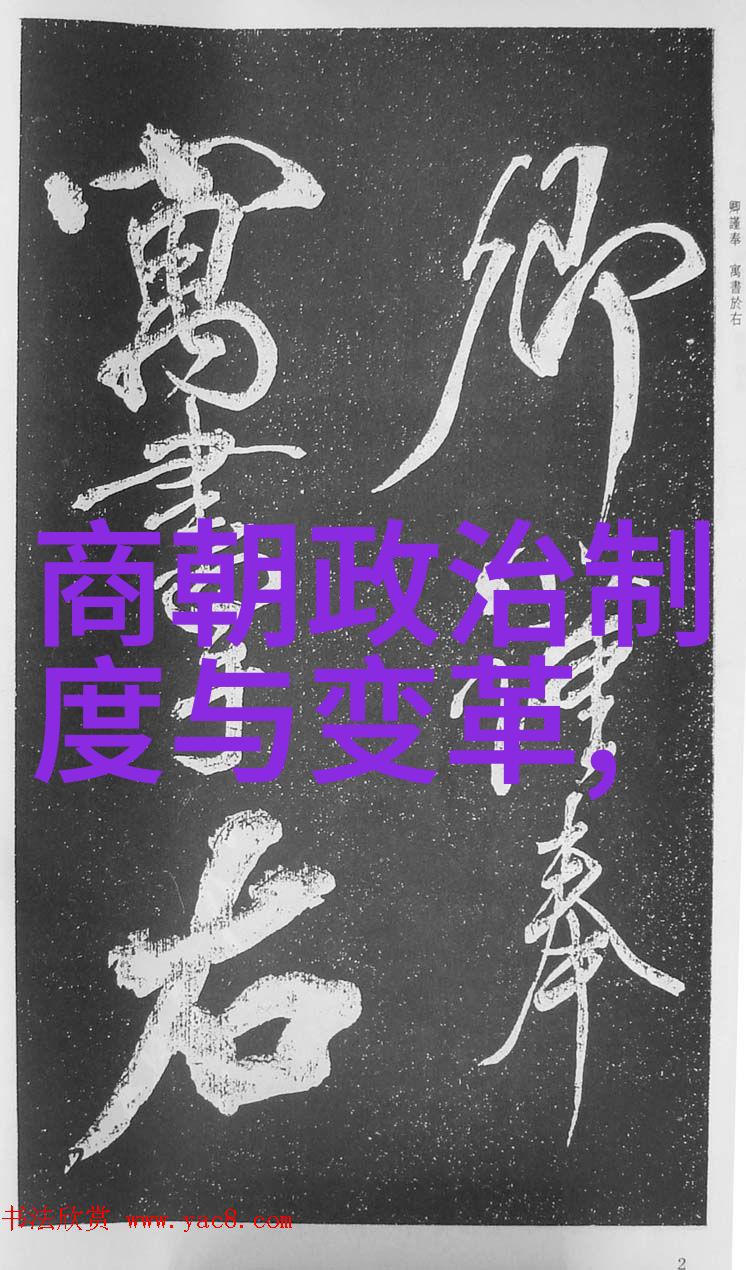 卿謹奉
寓書於右
卿謹奉 寓書於右
商朝政治制
度与变革,
书法欣赏 www.yac8.com
2